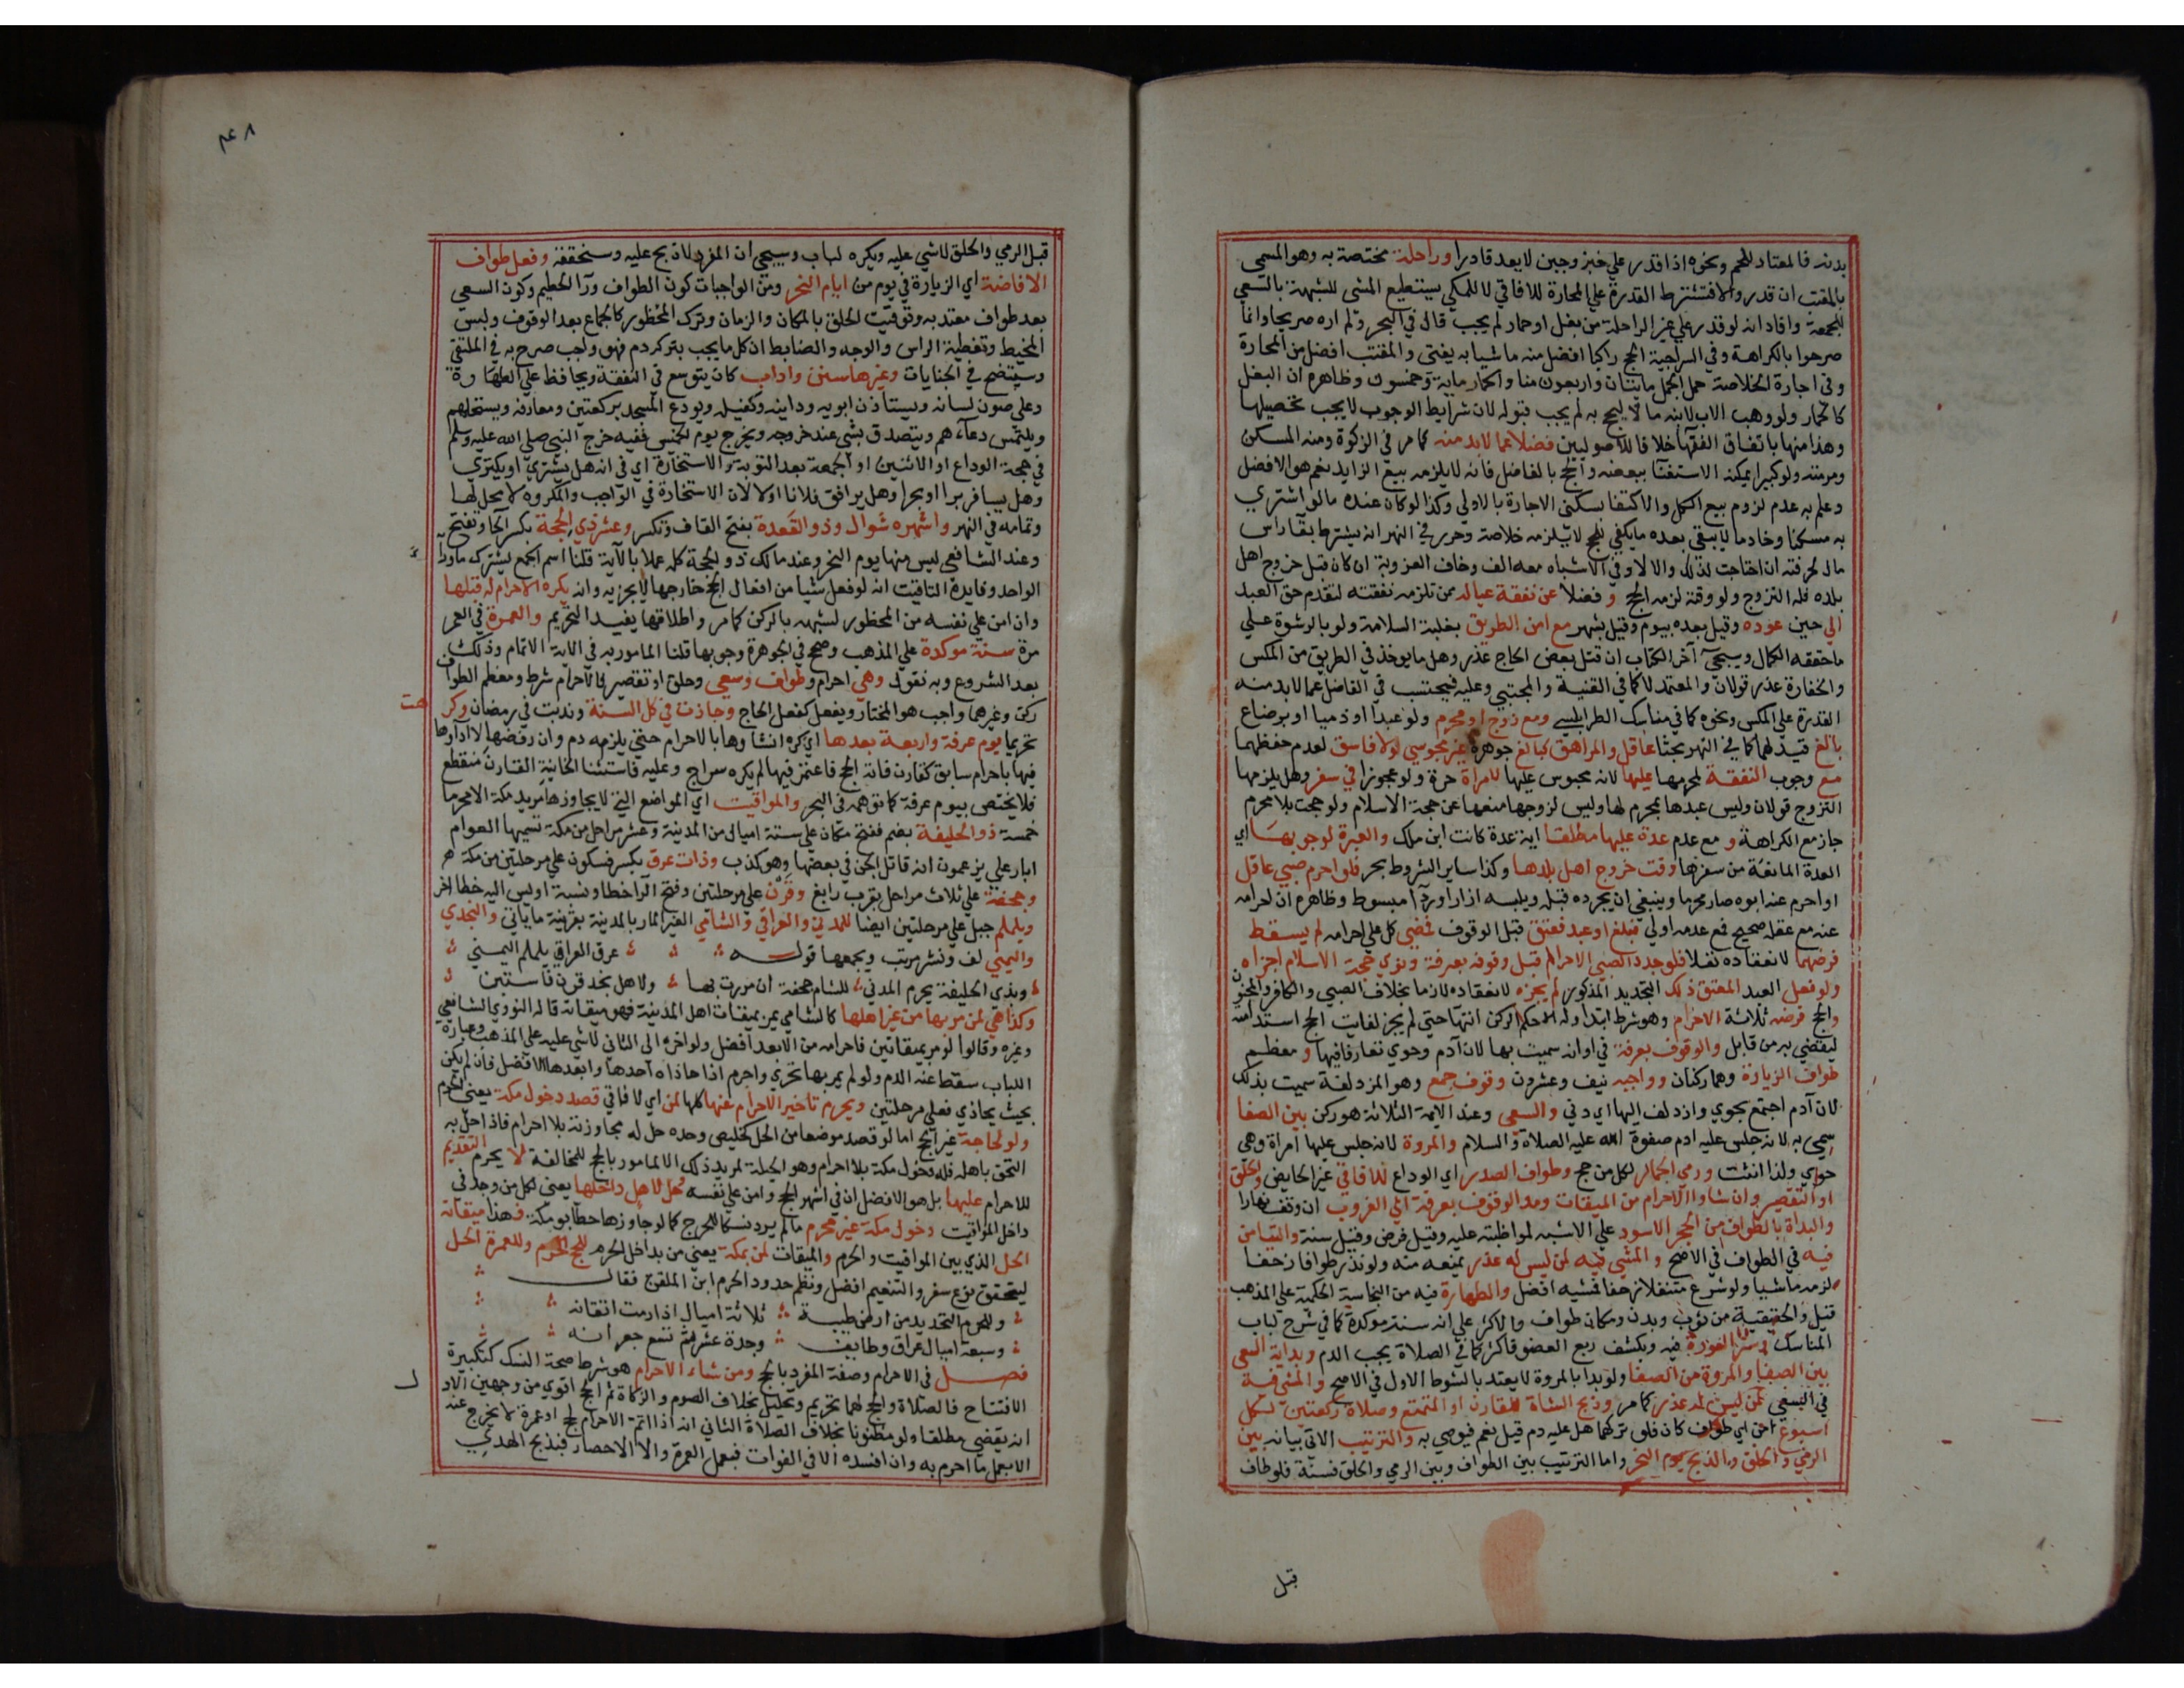 بدنه فالمعتاد للحم ونحوه اذا قدر علي خبز وجبن لا يعد قادرا وراحلة مختصة به وهو المسمي
بالمقتب ان قدر والا فتشترط القدرة علي المحارة للافاقي لا للمكي يستطيع المشي للشبهة بالسعي
للجمعة وافاد انه لو قدر علي غير الراحلة من بغل او حمار لم يجب قال في البحر ولم اره صريحا وانما
صرحوا بالكراهة وفي السراجية الحج راكبا افضل منه ماشيا به يفتي والمقتب افضل من المحارة
وفي اجارة الخلاصة حمل الجمل مايتان واربعون منا والحمار ماية وخمسون وظاهره ان البغل
كالحمار ولو وهب الاب لابنه ما لا يحج به لم يجب قبوله لان شرايط الوجوب لا يجب تحصيلها
وهذا منها باتفاق الفقها خلافا للاصوليين فضلا عما لا بد منه كما مر في الزكوة ومنه المسكن
ومرمته ولو كبيرا يمكنه الاستغنا ببعضه والحج بالفاضل فانه لا يلزمه بيع الزايد نعم هو الافضل
وعلم به عدم لزوم بيع الكل والاكتفا بسكني الاجارة بالاولي وكذا لو كان عنده ما لو اشتري
به مسكنا وخادما لا يبقي بعده ما يكفي للحج لا يلزمه خلاصة وحرر في النهر انه يشترط بقا راس
مال لحرفته ان احتاجت لذلك والا لا وفي الاشباه معه الف وخاف العزوبة ان كان قبل خروج اهل
بلده فله التزوج ولو وقته لزمه الحج وفضلا عن نفقة عياله ممن تلزمه نفقته لتقدم حق العبد
الي حين عوده وقيل بعده بيوم وقيل بشهر مع امن الطريق بغلبة السلامة ولو بالرشوة علي
ما حققه الكمال وسيجي آخر الكتاب ان قتل بعض الحاج عذر وهل ما يوخذ في الطريق من المكس
والخفارة عذر قولان والمعتمد لا كما في القنية والمجتبي وعليه فيحتسب في الفاضل عما لا بد منه
القدرة علي المكس ونحوه كما في مناسك الطرابلسي ومع زوج او محرم ولو عبدا او ذميا او برضاع
بالغ قيد لهما كما في النهر بحثا عاقل والمراهق كبالغ جوهرة غير مجوسي ولا فاسق لعدم حفظهما
مع وجوب النفقة لمحرمها عليها لانه محبوس عليها لامراة حرة ولو عجوزا في سفر وهل يلزمها
التزوج قولان وليس عبدها بمحرم لها وليس لزوجها منعها عن حجة الاسلام ولو حجت بلا محرم
جاز مع الكراهة و مع عدم عدة عليها مطلقا اية عدة كانت ابن ملك والعبرة لوجوبها اي
العدة المانعة من سفرها وقت خروج اهل بلدها وكذا ساير الشروط بحر فلو احرم صبي عاقل
او احرم عنه ابوه صار محرما وينبغي ان يجرده قبله ويلبسه ازارا وردآ مبسوط وظاهره ان احرامه
عنه مع عقله صحيح فمع عدمه اولي فبلغ او عبد فعتق قبل الوقوف فمضي كل علي احرامه لم يسقط
فرضهما لانعقاده نفلا فلو جدد الصبي الاحرام قبل وقوفه بعرفة ونوي حجة الاسلام اجزاه
ولو فعل العبد المعتق ذلك التجديد المذكور لم يجزه لانعقاده لازما بخلاف الصبي والكافر والمجنون
والحج فرضه ثلاثة الاحرام وهو شرط ابتدا وله حكم الركن انتها حتي لم يجز لفايت الحج استدامته
ليقضي به من قابل والوقوف بعرفة في اوانه سميت بها لان آدم وحوي تعارفا فيها و معظم
طواف الزيارة وهما ركنان وواجبه نيف وعشرون وقوف جمع وهو المزدلفة سميت بذلك
لان آدم اجتمع بحوي وازدلف اليها اي دني والسعي وعند الايمة الثلاثة هو ركن بين الصفا
سمي به لانه جلس عليه ادم صفوة الله عليه الصلاة والسلام والمروة لانه جلس عليها امراة وهي
حوي ولذا انثت ورمي الجمار لكل من حج وطواف الصدر اي الوداع للافاقي غير الحايض والحلق
او التقصير وانشاوا الاحرام من الميقات ومد الوقوف بعرفة الي الغروب ان وقف نهارا
والبداة بالطواف من الحجر الاسود علي الاشبه لمواظبته عليه وقيل فرض وقيل سنة والتيامن
فيه في الطواف في الاصح والمشي فيه لمن ليس له عذر يمنعه منه ولو نذر طوافا زحفا
لزمه ماشيا ولو شرع متنفلا زحفا فمشيه افضل والطهارة فيه من النجاسة الحكمية علي المذهب
قيل والحقيقية من ثوب وبدن ومكان طواف والاكثر علي انه سنة موكدة كما في شرح لباب
المناسك وستر العورة فيه وبكشف ربع العضو فاكثر كما في الصلاة يجب الدم وبداية السعي
بين الصفا والمروة من الصفا ولو بدا بالمروة لا يعتد بالشوط الاول في الاصح والمشي فيه
في السعي لمن ليس له عذر كما مر وذبح الشاة للقارن او المتمتع وصلاة ركعتين لكل
اسبوع من اي طواف كان فلو تركهما هل عليه دم قيل نعم فيوصي به والترتيب الاتي بيانه بين
الرمي والحلق والذبح يوم النحر واما الترتيب بين الطواف وبين الرمي والحلق فسنة فلو طاف
قبل
٤٨
قبل الرمي والحلق لا شي عليه ويكره لباب وسيجي ان المفرد لا ذبح عليه وسنحققه وفعل طواف
الافاضة اي الزيارة في يوم من ايام النحر ومن الواجبات كون الطواف ورآ الحطيم وكون السعي
بعد طواف معتد به وتوقيت الحلق بالمكان والزمان وترك المحظور كالجماع بعد الوقوف ولبس
المخيط وتغطية الراس والوجه والضابط ان كل ما يجب بتركه دم فهو واجب صرح به في الملتقي
وسيتضح في الجنايات وغيرها سنن واداب كان يتوسع في النفقة ويحافظ علي الطهارة
وعلي صون لسانه ويستاذن ابويه ودائنه وكفيله ويودع المسجد بركعتين ومعارفه ويستحلهم
ويلتمس دعآءهم ويتصدق بشي عند خروجه ويخرج يوم الخميس ففيه خرج النبي صلي الله عليه وسلم
في حجة الوداع او الاثنين او الجمعة بعد التوبة والاستخارة اي في انه هل يشتري او يكتري
وهل يسافر برا او بحرا وهل يرافق فلانا او لا لان الاستخارة في الواجب والمكروه لا محل لها
وتمامه في النهر واشهره شوال وذو القعدة بفتح القاف وتكسر وعشر ذي الحجة بكسر الحا وتفتح
وعند الشافعي ليس منها يوم النحر وعند مالك ذو الحجة كله عملا بالآية قلنا اسم الجمع يشترك ما ورآ
الواحد وفايدة التاقيت انه لو فعل شيا من افعال الحج خارجها لا يجزيه وانه يكره الاحرام له قبلها
وان امن علي نفسه من المحظور لشبهه بالركن كما مر واطلاقها يفيد التحريم والعمرة في العمر
مرة سنة موكدة علي المذهب وصحح في الجوهرة وجوبها قلنا المامور به في الاية الاتمام وذلك
بعد الشروع وبه نقول وهي احرام وطواف وسعي وحلق او تقصير فالاحرام شرط ومعظم الطواف
ركن وغيرهما واجب هو المختار ويفعل كفعل الحاج وجازت في كل السنة وندبت في رمضان وكرهت
تحريما يوم عرفة واربعة بعدها اي كره انشاوها بالاحرام حتي يلزمه دم وان رفضها لا اداوها
فيها باحرام سابق كقارن فاته الحج فاعتمر فيها لم يكره سراج وعليه فاستثنا الخانية القارن منقطع
فلا يختص بيوم عرفة كما توهمه في البحر والمواقيت اي المواضع التي لا يجاوزها مريد مكة الا محرما
خمسة ذو الحليفة بضم ففتح مكان علي ستة اميال من المدينة وعشر مراحل من مكة تسميها العوام
ابار علي يزعمون انه قاتل الجن في بعضها وهو كذب وذات عرق بكسر فسكون علي مرحلتين من مكة
وجحفة علي ثلاث مراحل بقرب رابغ وقرن علي مرحلتين وفتح الرا خطا ونسبة اويس اليه خطا اخر
ويلملم جبل علي مرحلتين ايضا للمدني والعراقي والشامي الغير المار بالمدينة بقرينة ما ياتي والنجدي
واليمني لف ونشر مرتب ويجمعها قوله عرق العراقي يلملم اليمني
وبذي الحليفة يحرم المدني للشام جحفة ان مررت بها ولاهل نجد قرن فاستبن
وكذا هي لمن مر بها من غير اهلها كالشامي يمر بميقات اهل المدينة فهو ميقاته قاله النووي الشافعي
وغيره وقالوا لو مر بميقاتين فاحرامه من الابعد افضل ولو اخره الي الثاني لا شي عليه علي المذهب وعبارة
اللباب سقط عنه الدم ولو لم يمر بها تحري واحرم اذا حاذاه احدها وابعدها افضل فان لم يكن
بحيث يحاذي فعلي مرحلتين ويحرم تاخير الاحرام عنها كلها لمن اي لافاقي قصد دخول مكة يعني الحرم
ولو لحاجة غير الحج اما لو قصد موضعا من الحل كخليص وجده حل له مجاوزته بلا احرام فاذا حل به
التحق باهله فله دخول مكة بلا احرام وهو الحيلة لمريد ذلك الا لمامور بالحج للمخالفة لا يحرم التقديم
للاحرام عليها بل هو الافضل ان في اشهر الحج وامن علي نفسه وحل لاهل داخلها يعني لكل من وجد في
داخل المواقيت دخول مكة غير محرم ما لم يرد نسكا للحرج كما لو جاوزها حطابو مكة فهذا ميقاته
الحل الذي بين المواقيت والحرم والميقات لمن بمكة يعني من بداخل الحرم للحج الحرم وللعمرة الحل
ليتحقق نوع سفر والتنعيم افضل ونظم حدود الحرم ابن الملقن فقال
وللحرم التحديد من ارض طيبة ثلاثة اميال اذا رمت اتقانه
وسبعة اميال عراق وطايف وجدة عشر ثم تسع جعرانه
فصل في الاحرام وصفة المفرد بالحج ومن شاء الاحرام هو شرط صحة النسك كتكبيرة
الافتتاح فالصلاة والحج لهما تحريم وتحليل بخلاف الصوم والزكاة ثم الحج اقوي من وجهين الاول
انه يقضي مطلقا ولو مظنونا بخلاف الصلاة الثاني انه اذا اتم الاحرام لحج او عمرة لا يخرج عنه
الا بعمل ما احرم به وان افسده الا في الفوات فبعمل العمرة والا الاحصار فبذبح الهدي